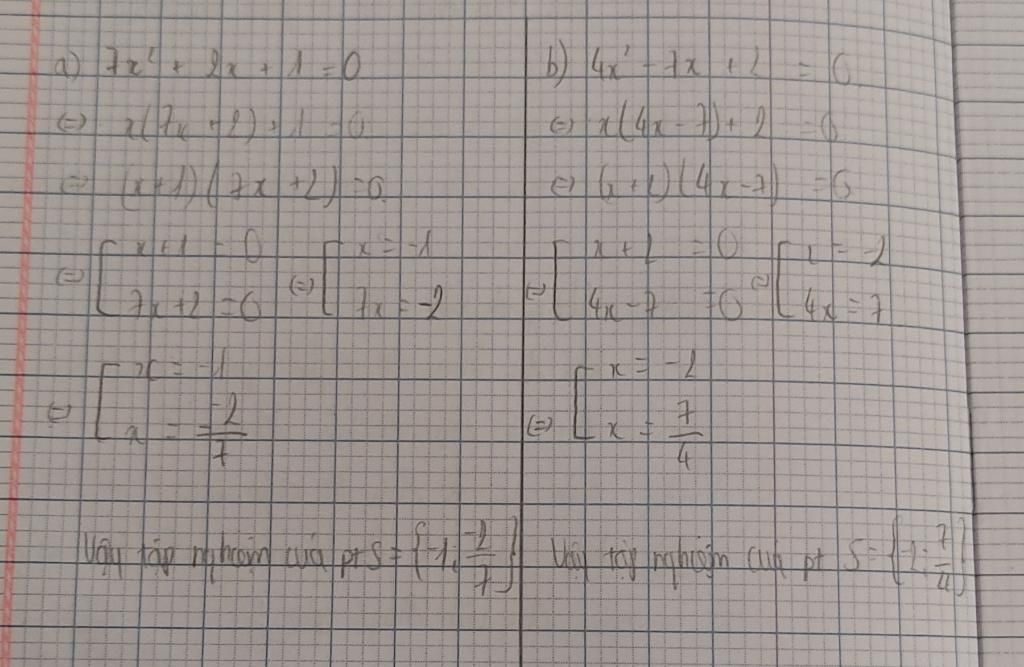 a) 7x² + 2x + 1 = 0
⇔ x(7x + 2) + 1 = 0
⇔ (x+1)(7x+2) = 0
⇔ [ x+1 = 0 ⇔ [ x = -1
7x+2 = 0 7x = -2
⇔ [ x = -1
x = -2/7
Vậy tập nghiệm của pt S = {-1; -2/7}
b) 4x² - 7x + 2 = 0
⇔ x(4x - 7) + 2 = 0
⇔ (x+2)(4x-7) = 0
⇔ [ x+2 = 0 ⇔ [ x = -2
4x-7 = 0 4x = 7
⇔ [ x = -2
x = 7/4
Vậy tập nghiệm của pt S = {-2; 7/4}